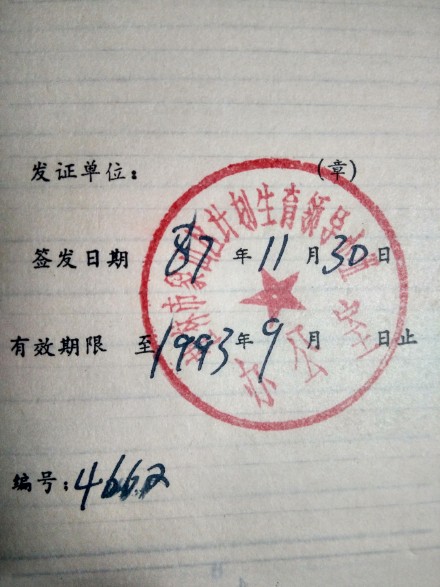 发证单位： (章)
签发日期 87年11月30日
有效期限 至1993年9月 日止
编号：4662
计划生育领导小组
办公室